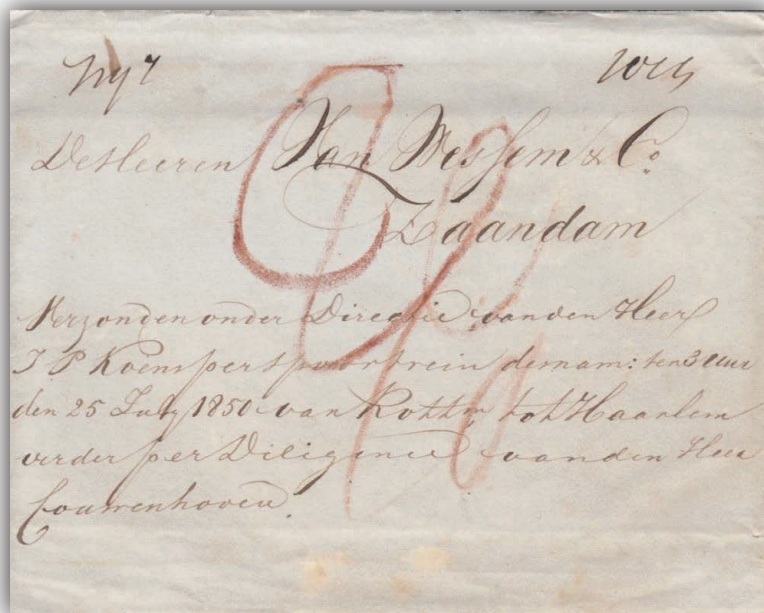 De Heeren Van Wessem & Co.
Zaandam
Verzonden onder Directie van den Heer
J P Koens per spoortrein desnam: ten 3 uur
den 25 July 1850 van Rottm tot Haarlem
verder per Diligence van den Heer
Couwenhoven.